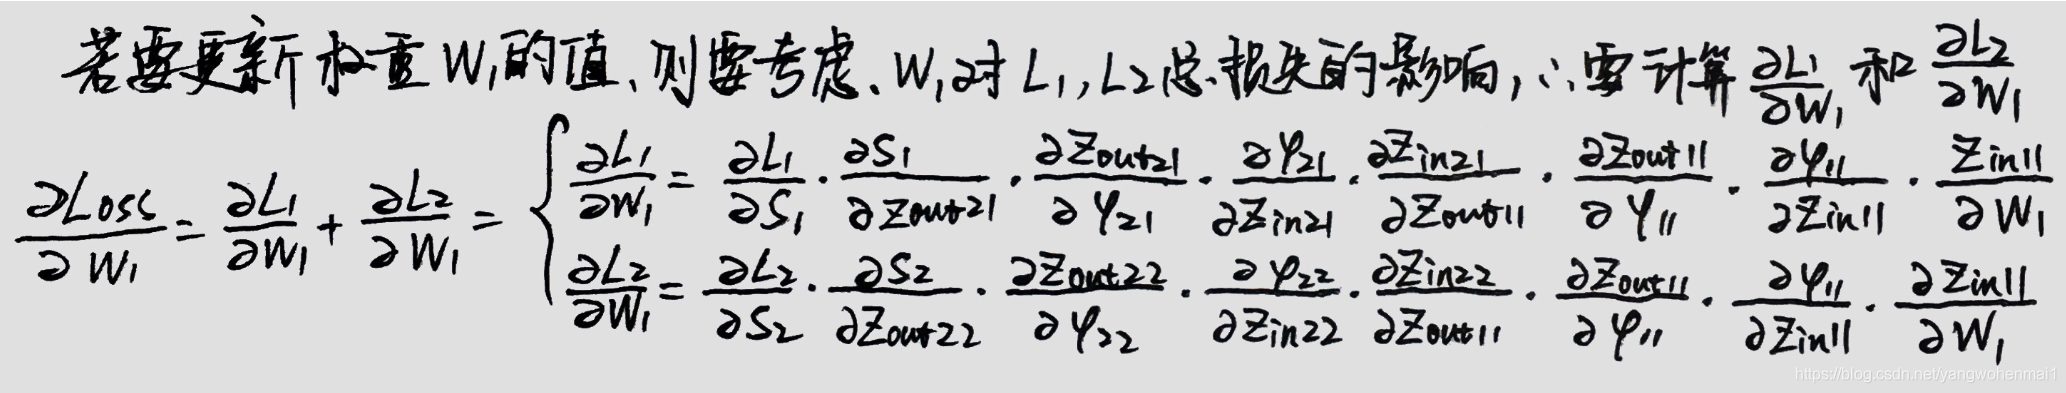 若要更新权重W₁的值、则要考虑、W₁对L₁,L₂总损失的影响,∴需计算∂L₁/∂W₁和∂L₂/∂W₁
∂Loss/∂W₁ = ∂L₁/∂W₁ + ∂L₂/∂W₁ = {
∂L₁/∂W₁ = ∂L₁/∂S₁ · ∂S₁/∂Zout21 · ∂Zout21/∂φ21 · ∂φ21/∂Zin21 · ∂Zin21/∂Zout11 · ∂Zout11/∂φ11 · ∂φ11/∂Zin11 · Zin11/∂W₁
∂L₂/∂W₁ = ∂L₂/∂S₂ · ∂S₂/∂Zout22 · ∂Zout22/∂φ22 · ∂φ22/∂Zin22 · ∂Zin22/∂Zout11 · ∂Zout11/∂φ11 · ∂φ11/∂Zin11 · ∂Zin11/∂W₁
https://blog.csdn.net/yangwohenmai1